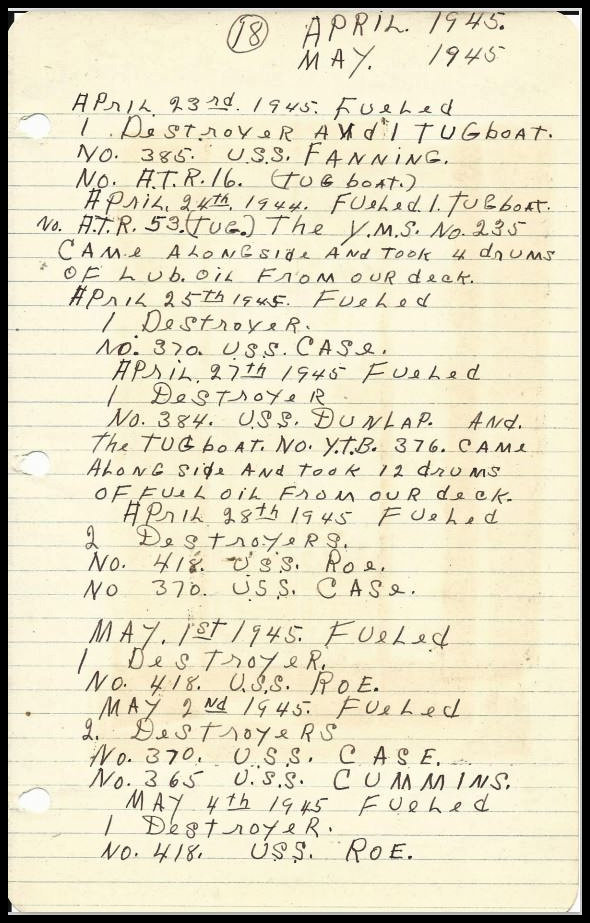 18 APRIL. 1945.
MAY. 1945
APRIL 23rd. 1945. FUeLed
1 DestroyeR ANd 1 TUGboAT.
NO. 385. U.S.S. FANNING.
NO. A.T.R. 16. (TUG boAT.)
APRIL. 24th. 1944. FUeLed. 1. TUGboAT.
No. A.T.R. 53. (TUG.) The Y.M.S. No. 235
CAMe ALONGside ANd Took 4 drUMS
OF LUb. OIL FROM OUR deck.
APRIL 25Th 1945. FUeLed
1 DestroyeR.
NO. 370. U.S.S. CASe.
APRIL. 27th 1945 FUeLed
1 DestroyeR
NO. 384. U.S.S. DUNLAP. ANd.
The TUG boAT. NO. Y.T.B. 376. CAMe
ALONG side ANd Took 12 drUMS
OF FUeL OIL FROM OUR deck.
APRIL 28th 1945 FUeLed
2 DestroyeRS.
NO. 418. U.S.S. Roe.
NO 370. U.S.S. CASe.
MAY. 1st 1945. FUeLed
1 DestroyeR.
NO. 418. U.S.S. ROE.
MAY 2Nd 1945. FUeLed
2. DestroyeRS
NO. 370. U.S.S. CASE.
NO. 365 U.S.S. CUMMINS.
MAY 4th 1945 FUeLed
1 DestroyeR.
NO. 418. USS. ROE.